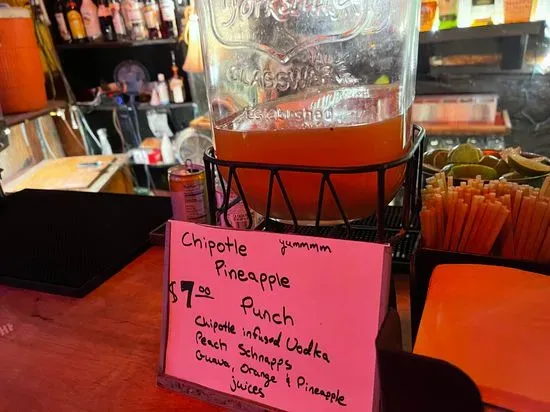 Yorkshire
GLASSWARE
ESTABLISHED
Chipotle yummmm
Pineapple
$7.00 Punch
Chipotle infused Vodka
Peach Schnapps
Guava, Orange & Pineapple
juices